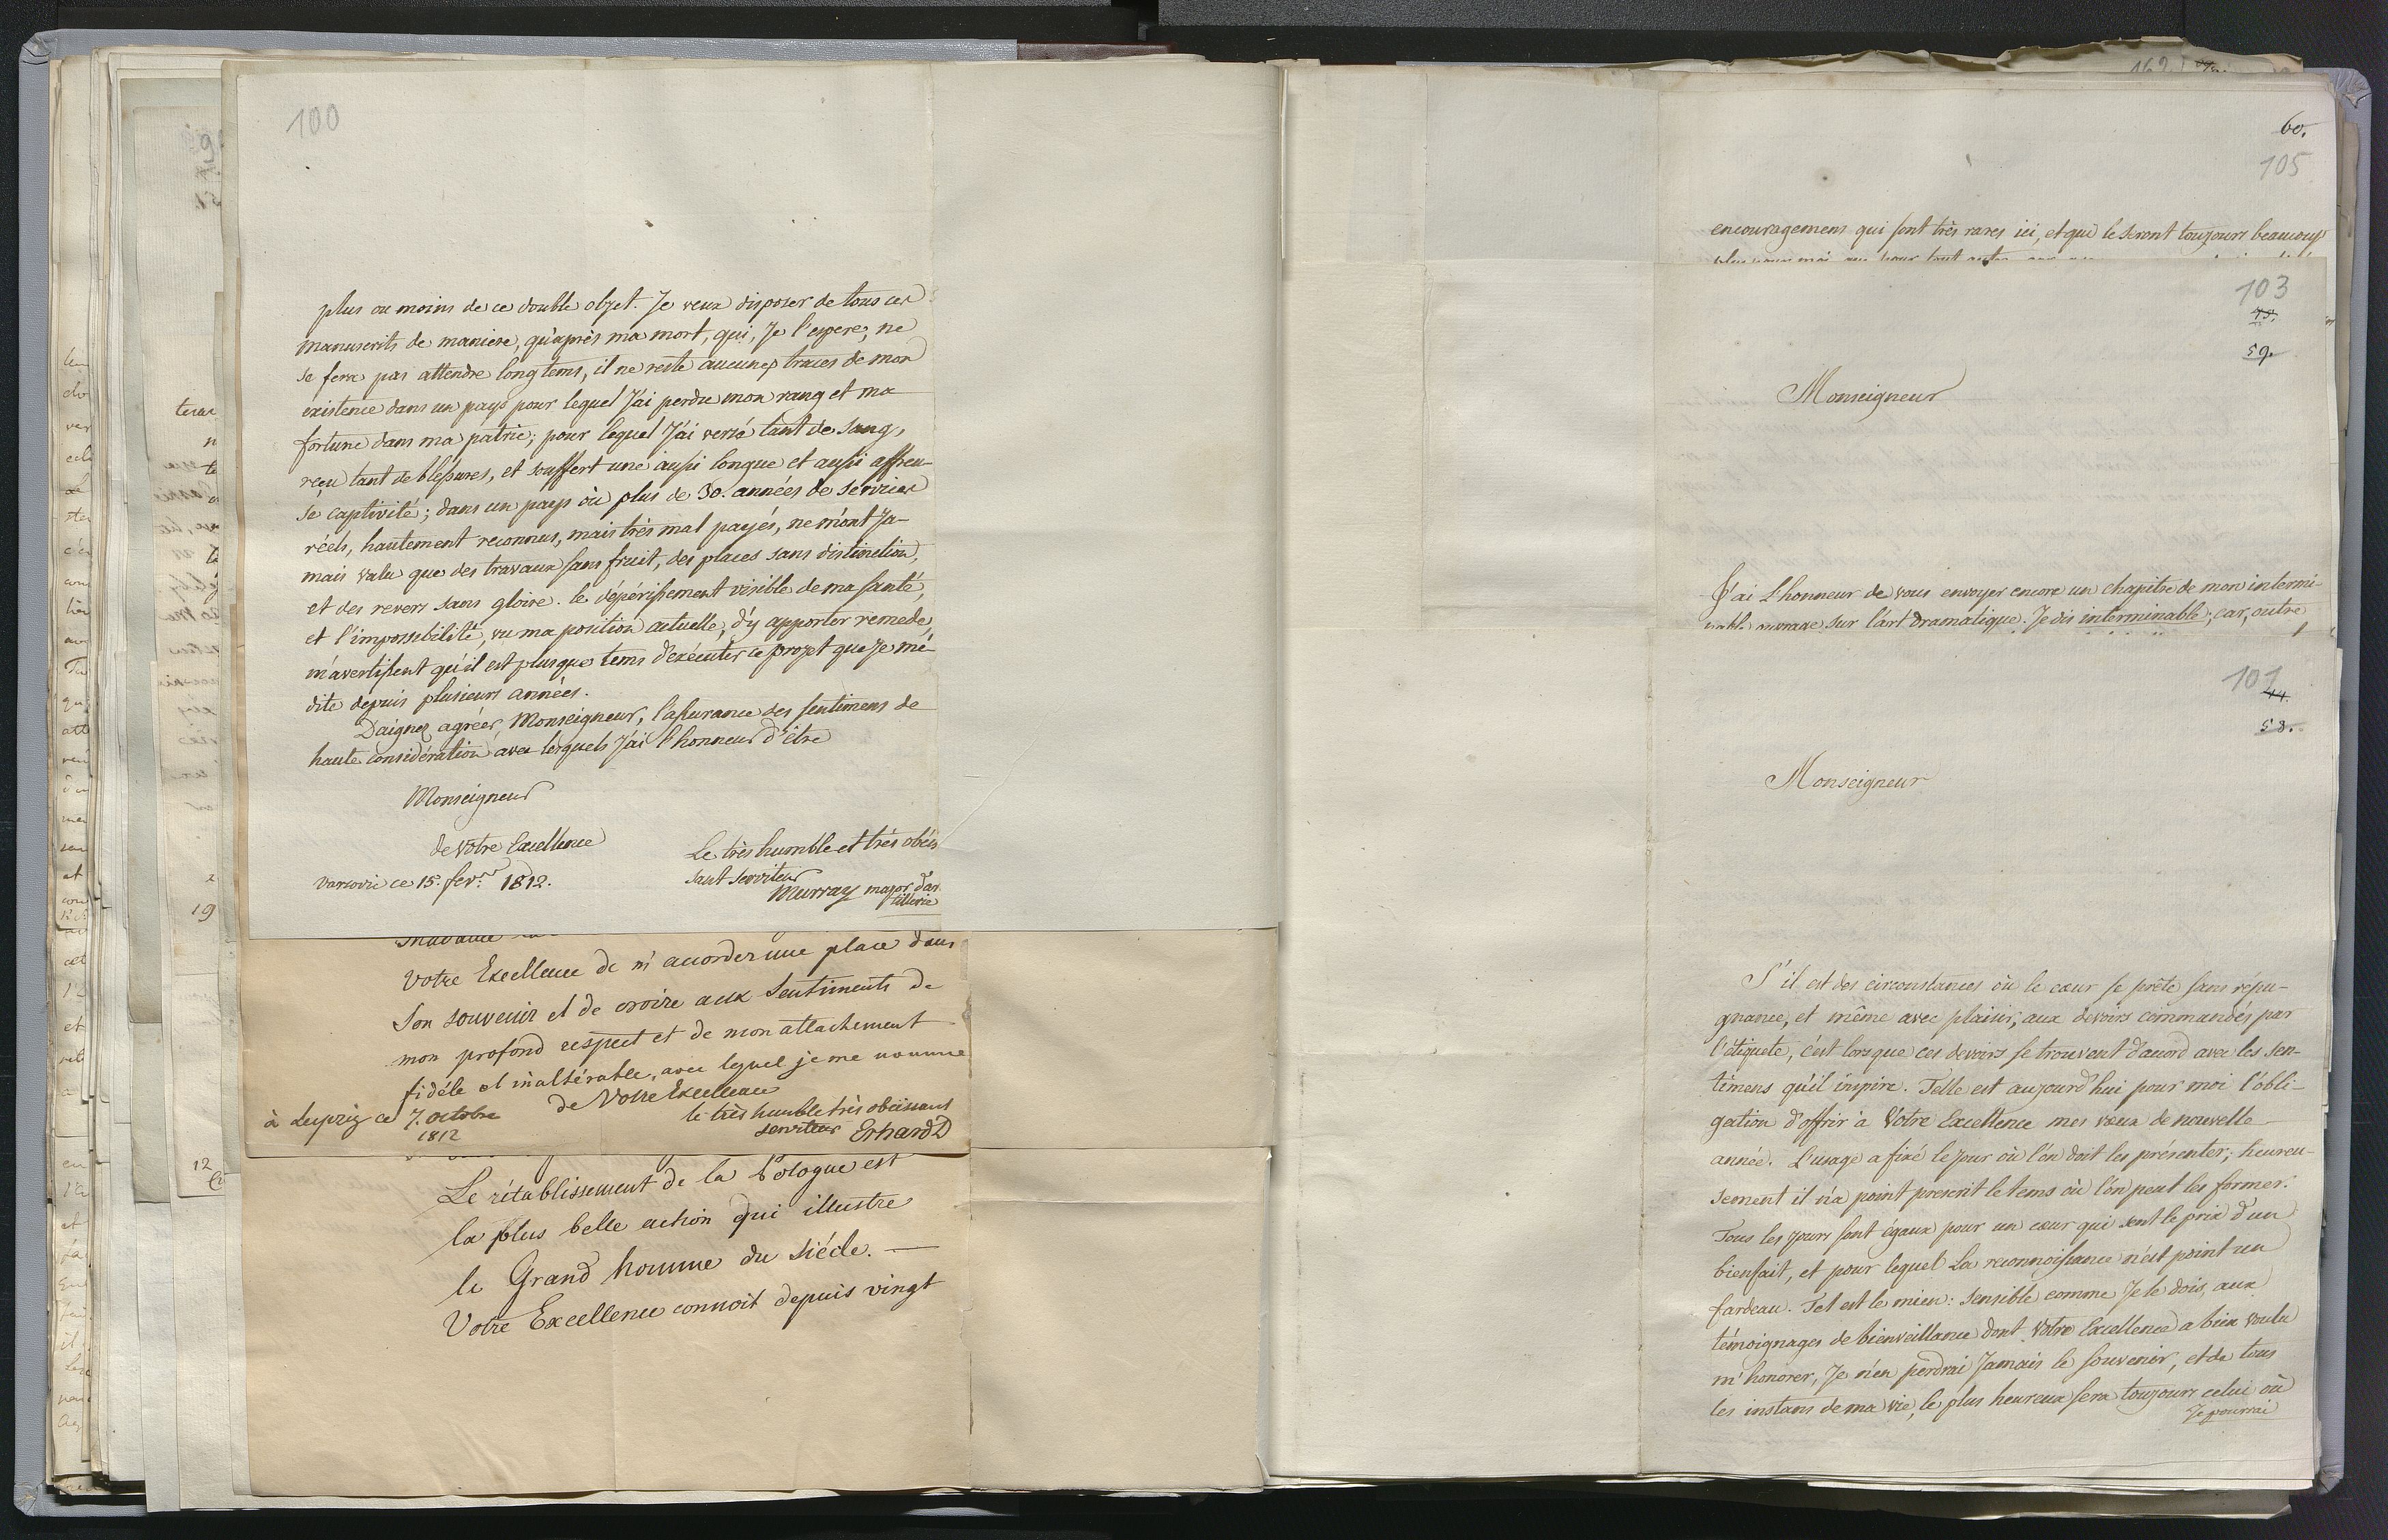 100
plus ou moins de ce double objet. Je veux disposer de tous ces
manuscrits de maniere, qu'après ma mort, qui, Je l'espere, ne
se fera pas attendre longtems, il ne reste aucunes traces de mon
existence dans un pays pour lequel J'ai perdu mon rang et ma
fortune dans ma patrie; pour lequel J'ai versé tant de sang,
reçu tant de blessures, et souffert une aussi longue et aussi affreu-
se captivité; dans un pays où plus de 30. années de services
réels, hautement reconnus, mais très mal payés, ne m'ont Ja-
mais valu que des travaux sans fruit, des places sans distinction,
et des revers sans gloire. le dépérissement visible de ma santé,
et l'impossibilité, vu ma position actuelle, d'y apporter remede,
m'avertissent qu'il est plusque tems d'exécuter ce projet que Je mé-
dite depuis plusieurs années.
Daignez agréer, Monseigneur, l'assurance des sentimens de
haute considération avec lesquels J'ai l'honneur d'être
Monseigneur
de Votre Excellence
Le très humble et très obéis
sant serviteur
Varsovie ce 15. fevr. 1812.
Murray major d'ar
tillerie
Votre Excellence de m'accorder une place dans
Son souvenir et de croire aux Sentiments de
mon profond respect et de mon attachement
fidéle et inaltérable, avec lequel je me nomme
de Votre Excellence
à Leipzig ce 7. octobre
1812
le très humble très obéissant
serviteur Erhard D
Le rétablissement de la Pologne est
la plus belle action qui illustre
le Grand homme du siécle. —
Votre Excellence connoit depuis vingt
60.
105
encouragemens qui sont très rares ici, et qui le seront toujours beaucoup
103
75.
59.
Monseigneur
J'ai l'honneur de vous envoyer encore un chapitre de mon intermi-
nable ouvrage sur l'art dramatique. Je dis interminable; car, outre
101
44.
58.
Monseigneur
S'il est des circonstances où le cœur se prête sans répu-
gnance, et même avec plaisir, aux devoirs commandés par
l'étiquete, c'est lorsque ces devoirs se trouvent d'accord avec les sen-
timens qu'il inspire. Telle est aujourd'hui pour moi l'obli-
gation d'offrir à Votre Excellence mes vœux de nouvelle
année. L'usage a fixé le jour où l'on doit les présenter; heureu-
sement il n'a point prescrit le tems où l'on peut les former.
Tous les jours sont égaux pour un cœur qui sent le prix d'un
bienfait, et pour lequel La reconnoissance n'est point un
fardeau. Tel est le mien: sensible comme Je le dois, aux
témoignages de bienveillance dont Votre Excellence a bien voulu
m'honorer, Je n'en perdrai Jamais le souvenir, et de tous
les instans de ma vie, le plus heureux sera toujours celui où
Je pourrai